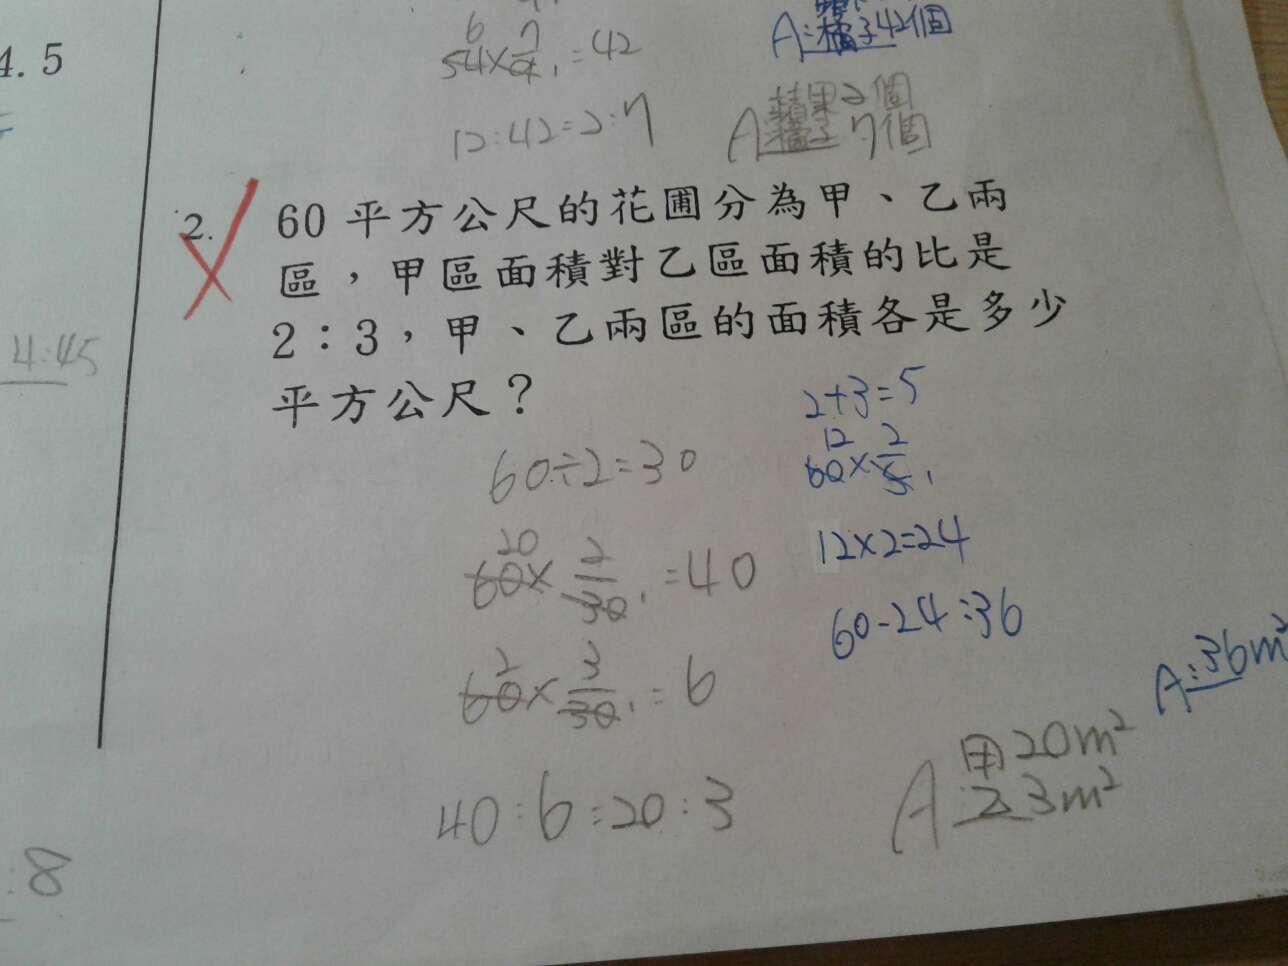 4.5
54×7/9=42
6 7
1
12:42=2:7
A:橘子42個
A 蘋果2個
橘子7個
2. 60平方公尺的花圃分為甲、乙兩
區，甲區面積對乙區面積的比是
2：3，甲、乙兩區的面積各是多少
平方公尺？
4:45
60÷2=30
20
60×2/30 1=40
2
60×3/30 1=6
40:6=20:3
2+3=5
12
60×2/5 1
12×2=24
60-24=36
A:36m²
A 甲20m²
乙3m²
:8